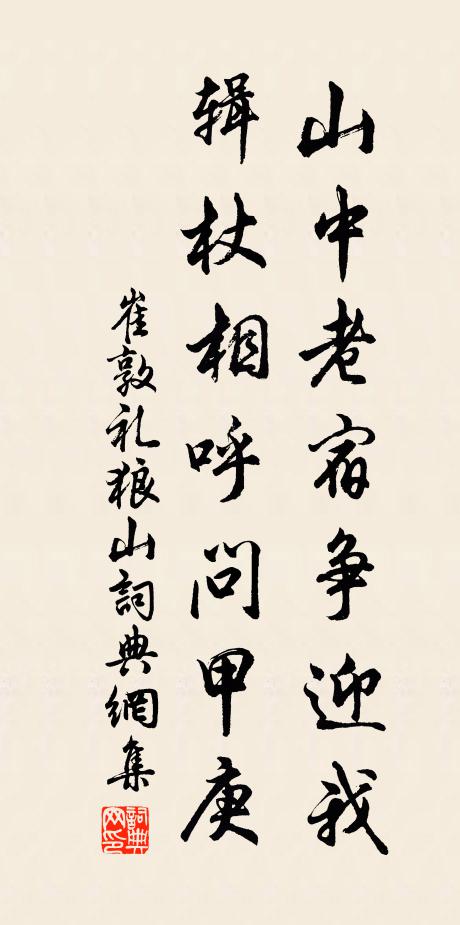 山中老宿争迎我
辑杖相呼問甲庚
崔敦礼狼山詞典網集
詞典网印